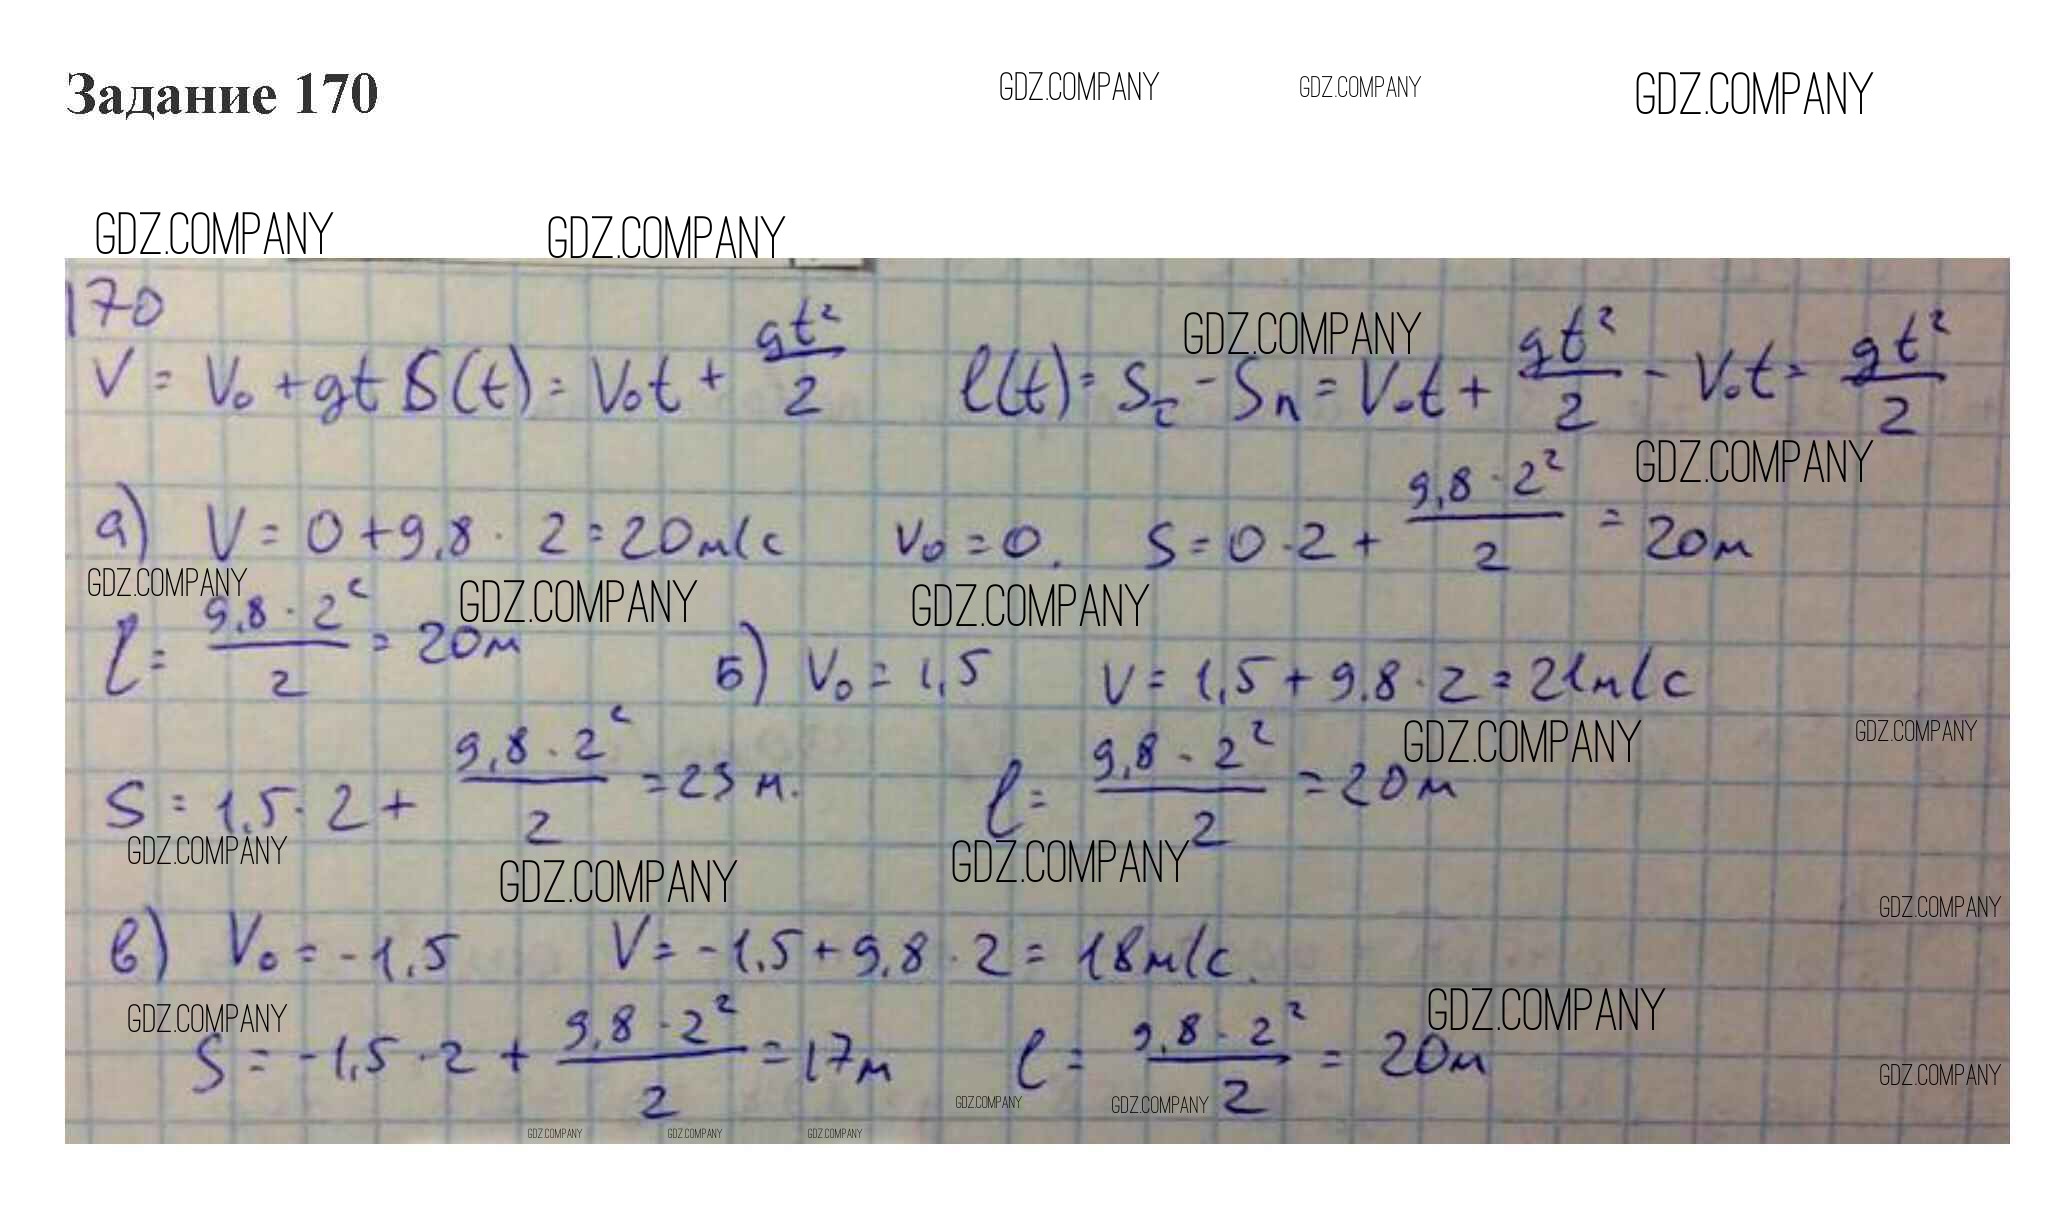 Задание 170
GDZ.COMPANY GDZ.COMPANY GDZ.COMPANY
GDZ.COMPANY GDZ.COMPANY
170
V = V₀ + gt S(t) = V₀t + gt²/2 l(t) = Sс - Sп = V₀t + gt²/2 - V₀t = gt²/2
GDZ.COMPANY
GDZ.COMPANY
а) V = 0 + 9,8 · 2 = 20м/с V₀ = 0. S = 0 · 2 + 9,8 · 2²/2 = 20м
GDZ.COMPANY GDZ.COMPANY GDZ.COMPANY
l = 9,8 · 2²/2 = 20м б) V₀ = 1,5 V = 1,5 + 9,8 · 2 = 21м/с
GDZ.COMPANY GDZ.COMPANY
S = 1,5 · 2 + 9,8 · 2²/2 = 23 м. l = 9,8 · 2²/2 = 20м
GDZ.COMPANY GDZ.COMPANY GDZ.COMPANY
GDZ.COMPANY
в) V₀ = -1,5 V = -1,5 + 9,8 · 2 = 18м/с.
GDZ.COMPANY GDZ.COMPANY
S = -1,5 · 2 + 9,8 · 2²/2 = 17м l = 9,8 · 2²/2 = 20м
GDZ.COMPANY
GDZ.COMPANY GDZ.COMPANY
GDZ.COMPANY GDZ.COMPANY GDZ.COMPANY